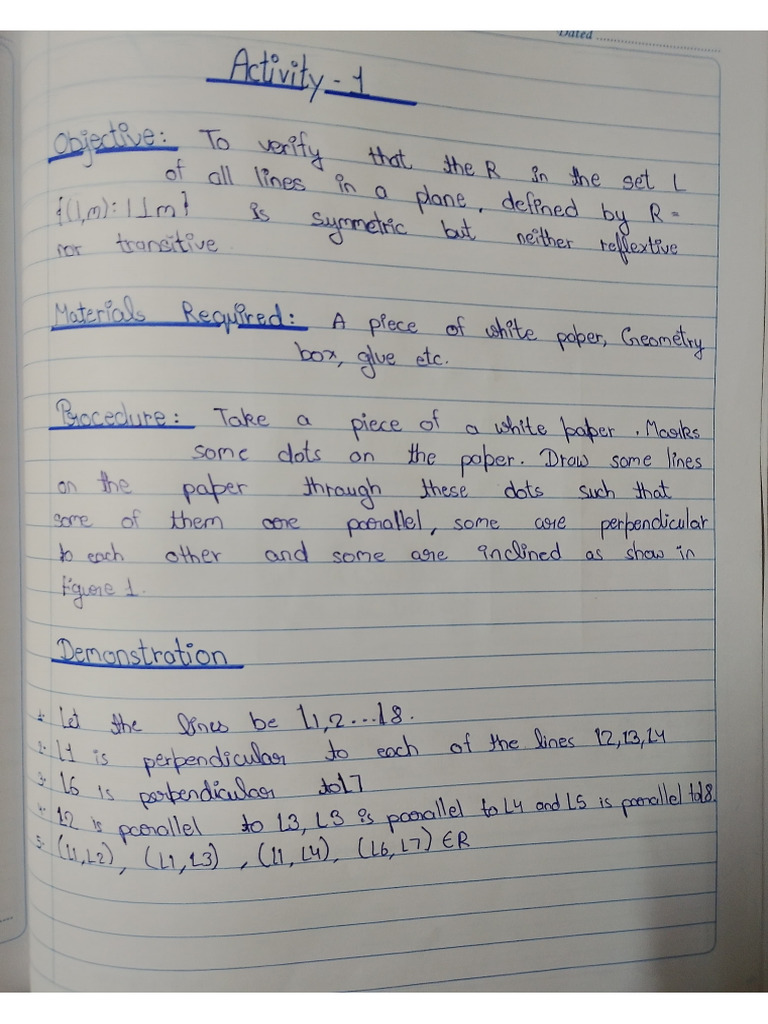 Dated
Activity-1
Objective: To verify that the R in the set L
of all lines in a plane, defined by R=
{(l,m): l⊥m} is symmetric but neither reflextive
nor transitive
Materials Required: A piece of white paper, Geometry
box, glue etc.
Procedure: Take a piece of a white paper. Marks
some dots on the paper. Draw some lines
on the paper through these dots such that
some of them are parallel, some are perpendicular
to each other and some are inclined as show in
figure 1.
Demonstration
1. Let the lines be L1,2...L8.
2. L1 is perpendicular to each of the lines L2,L3,L4
3. L6 is perpendicular to L7
4. L2 is parallel to L3, L3 is parallel to L4 and L5 is parallel to L8.
5. (L1,L2), (L1,L3), (L1,L4), (L6,L7) ∈R